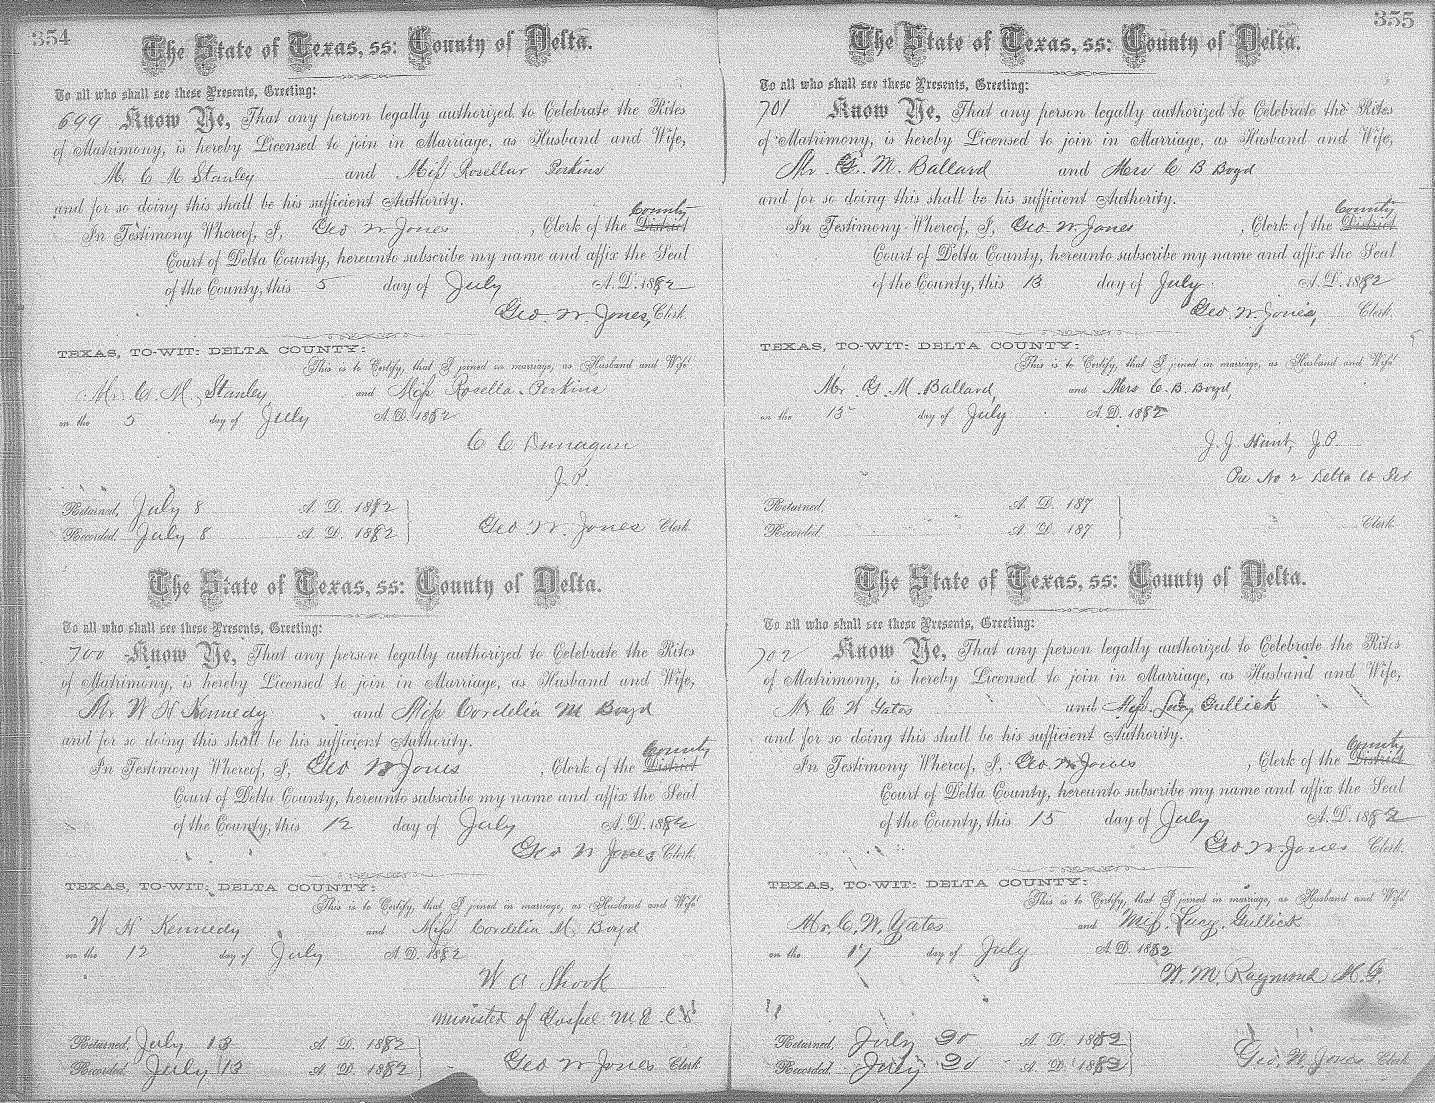 354
The State of Texas, ss: County of Delta.
To all who shall see these Presents, Greeting:
699 Know Ye, That any person legally authorized to Celebrate the Rites
of Matrimony, is hereby Licensed to join in Marriage, as Husband and Wife,
Mr C M Stanley and Miss Rosellar Perkins
and for so doing this shall be his sufficient Authority.
County
In Testimony Whereof, I, Geo W Jones, Clerk of the District
Court of Delta County, hereunto subscribe my name and affix the Seal
of the County, this 5 day of July A.D. 1882
Geo. W. Jones, Clerk.
TEXAS, TO-WIT: DELTA COUNTY:
This is to Certify, that I joined in marriage, as Husband and Wife
Mr C M Stanley and Miss Rosella Perkins
on the 5 day of July A.D. 1882
C C Dunagan
J. P.
Returned, July 8 A. D. 1882
Recorded, July 8 A. D. 1882 Geo W Jones Clerk
The State of Texas, ss: County of Delta.
To all who shall see these Presents, Greeting:
700 Know Ye, That any person legally authorized to Celebrate the Rites
of Matrimony, is hereby Licensed to join in Marriage, as Husband and Wife,
Mr W H Kennedy and Miss Cordelia M Boyd
and for so doing this shall be his sufficient Authority.
County
In Testimony Whereof, I, Geo W Jones, Clerk of the District
Court of Delta County, hereunto subscribe my name and affix the Seal
of the County, this 12 day of July A.D. 1882
Geo W Jones Clerk.
TEXAS, TO-WIT: DELTA COUNTY:
This is to Certify, that I joined in marriage, as Husband and Wife
W H Kennedy and Miss Cordelia M. Boyd
on the 12 day of July A.D. 1882
W A Shook
minister of Gospel M E C S
Returned, July 13 A. D. 1882
Recorded, July 13 A. D. 1882 Geo W Jones Clerk
355
The State of Texas, ss: County of Delta.
To all who shall see these Presents, Greeting:
701 Know Ye, That any person legally authorized to Celebrate the Rites
of Matrimony, is hereby Licensed to join in Marriage, as Husband and Wife,
Mr. G. M. Ballard and Mrs C B Boyd
and for so doing this shall be his sufficient Authority.
County
In Testimony Whereof, I, Geo. W. Jones, Clerk of the District
Court of Delta County, hereunto subscribe my name and affix the Seal
of the County, this 13 day of July A.D. 1882
Geo. W. Jones, Clerk.
TEXAS, TO-WIT: DELTA COUNTY:
This is to Certify, that I joined in marriage, as Husband and Wife
Mr. G. M. Ballard, and Mrs C. B. Boyd,
on the 13 day of July A.D. 1882
J. J. Hunt, J.P.
Pre No 2 Delta Co Tex
Returned, A. D. 187
Recorded, A. D. 187 Clerk.
The State of Texas, ss: County of Delta.
To all who shall see these Presents, Greeting:
702 Know Ye, That any person legally authorized to Celebrate the Rites
of Matrimony, is hereby Licensed to join in Marriage, as Husband and Wife,
Mr C W Yates and Miss. Lucy Gullick
and for so doing this shall be his sufficient Authority.
County
In Testimony Whereof, I, Geo W Jones, Clerk of the District
Court of Delta County, hereunto subscribe my name and affix the Seal
of the County, this 15 day of July A.D. 1882
Geo W. Jones Clerk.
TEXAS, TO-WIT: DELTA COUNTY:
This is to Certify, that I joined in marriage, as Husband and Wife
Mr. C. W. Yates and Miss. Lucy. Gullick
on the 17 day of July A.D. 1882
W. M. Raymond M. G.
Returned, July 20 A. D. 1882
Recorded, July 20 A. D. 1882 Geo. W. Jones Clerk